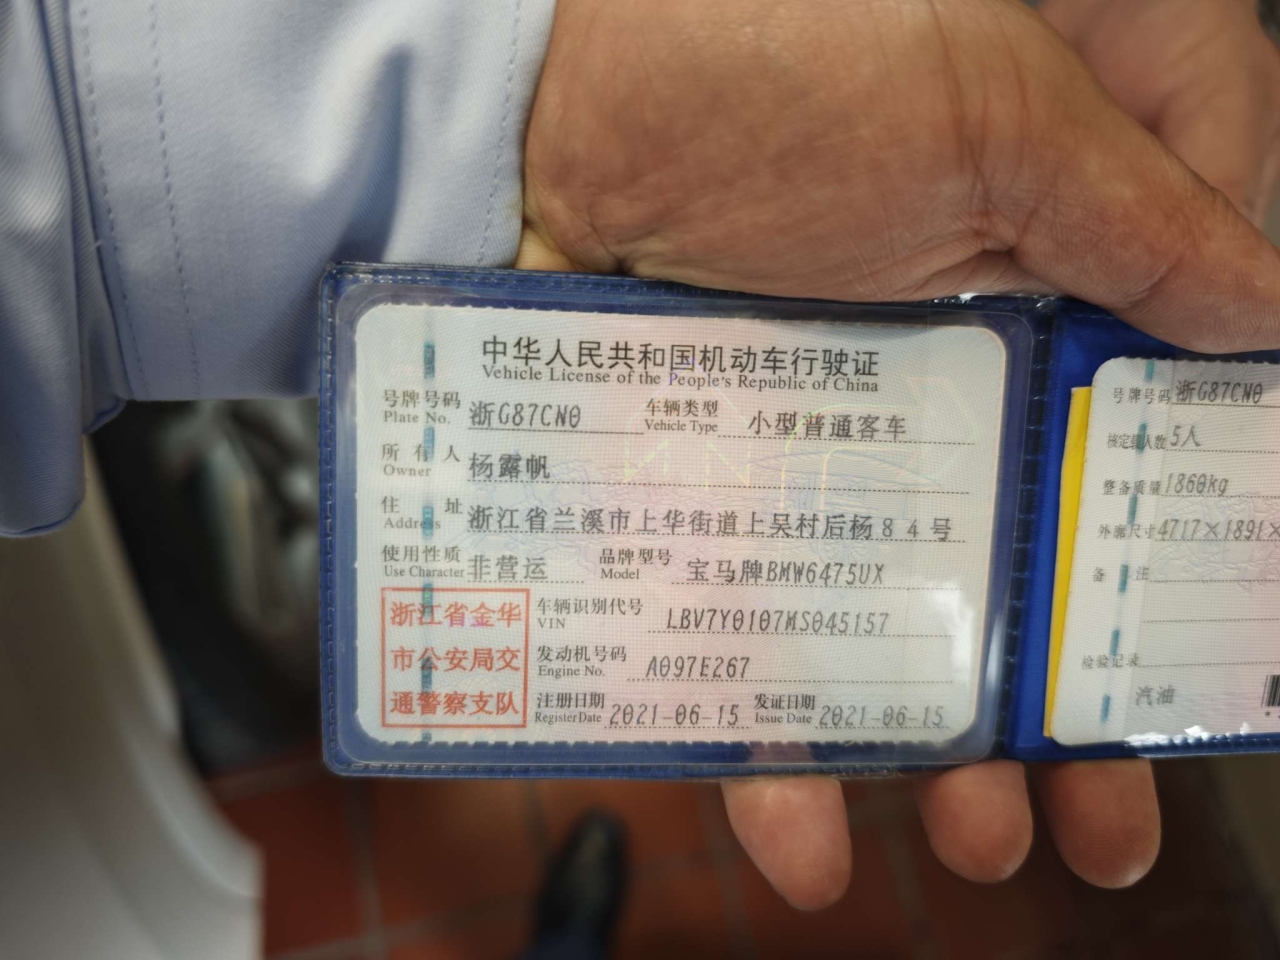 中华人民共和国机动车行驶证
Vehicle License of the People's Republic of China
号牌号码 浙G87CN0 车辆类型 小型普通客车
Plate No. Vehicle Type
所有人 杨露帆
Owner
住址 浙江省兰溪市上华街道上吴村后杨84号
Address
使用性质 非营运 品牌型号 宝马牌BMW6475UX
Use Character Model
浙江省金华
市公安局交
通警察支队
车辆识别代号 LBV7Y0107MS045157
VIN
发动机号码 A097E267
Engine No.
注册日期 2021-06-15 发证日期 2021-06-15
Register Date Issue Date
号牌号码 浙G87CN0
核定载人数 5人
整备质量 1860kg
外廓尺寸 4717×1891×
备注
检验记录
汽油